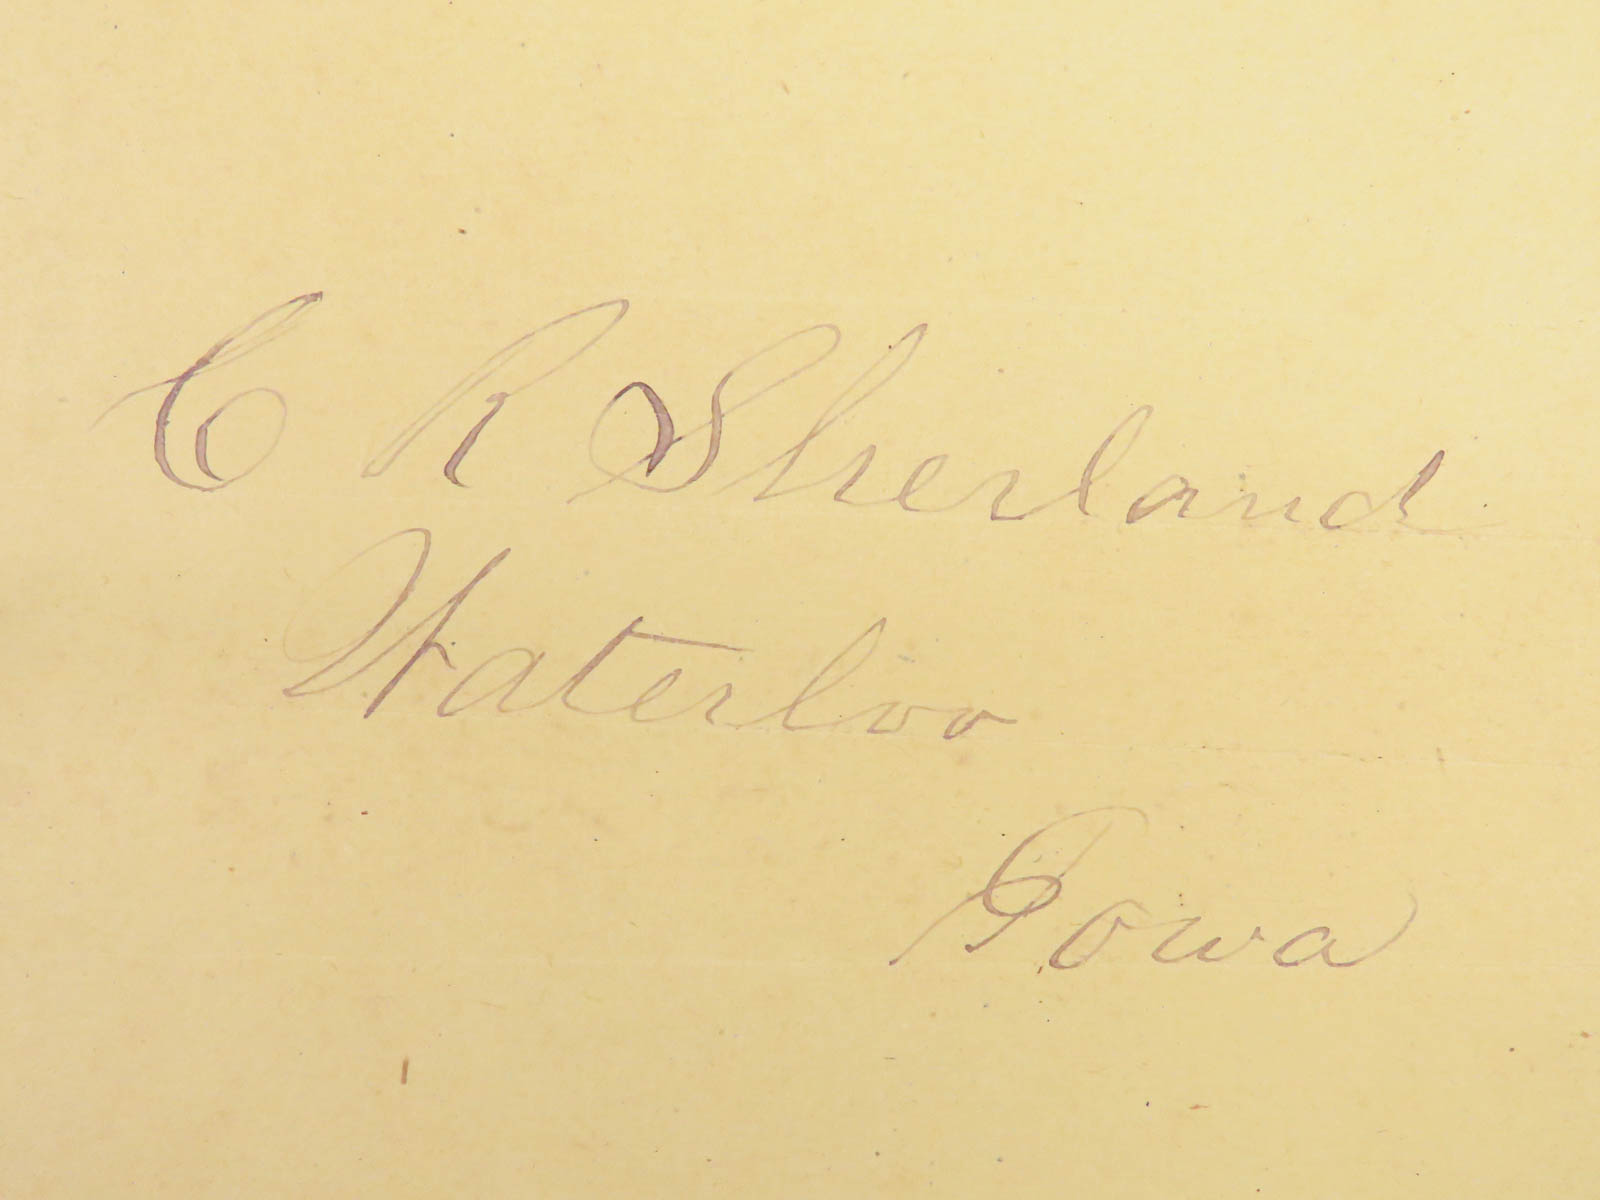 C R Sherland
Waterloo
Iowa